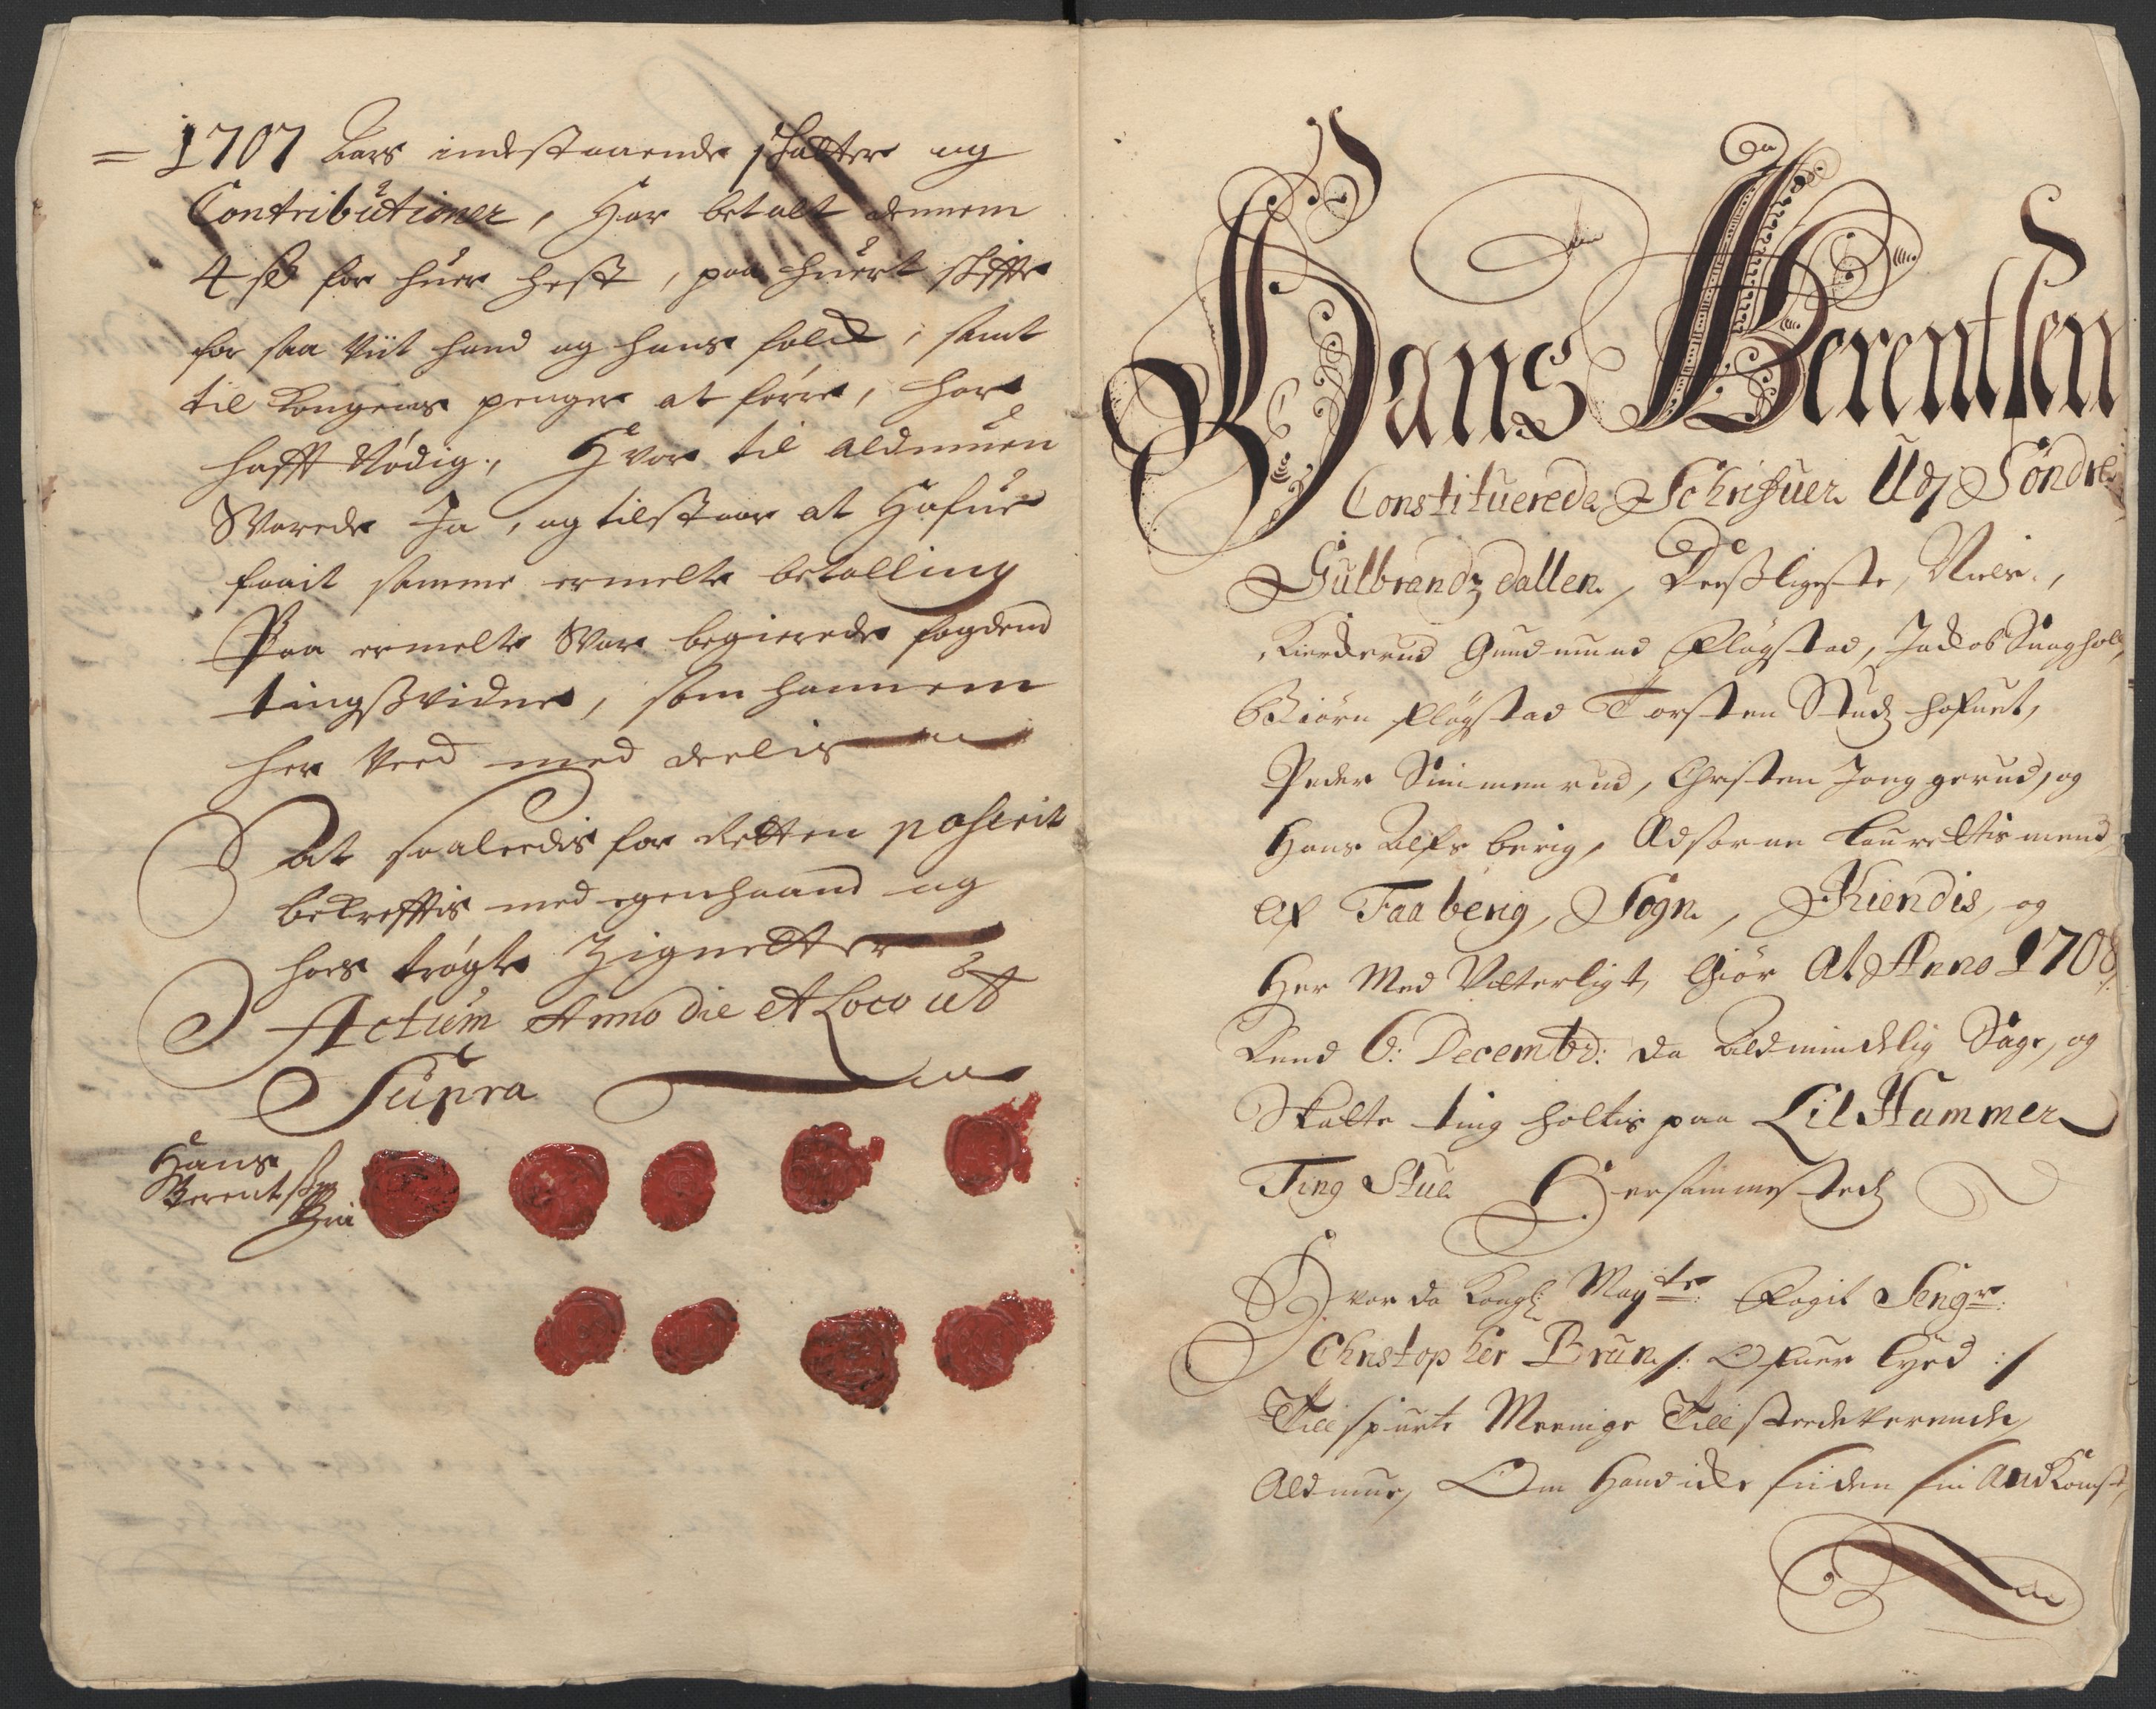 = 1707 Aars indestaaende skatter og
Contributioner, Har betalt dennem
4 sk for huer hest, paa huert skiffte
for saa Vit hand og hans folck, samt
til Kongens penger at førre, har
hafft Nødig., Hvor til aldmuen
Svarede Ja, og tilstaar at Hafue
faait samme ermelte betalling
Paa ermelte Svar begierede fogden
tingsvidne, som hannem
her Ved med deelis
At saaledis for Retten passerit
bekrefftis med egenhaand og
hoes trøgte Zignetter
Actum Anno die et Loco ut
Supra
Hans
Berentsen
Hans Berentsen
Constituerede Schrifuer Udj Søndre
Gulbrandzdallen, Desligeste, Niels,
Kierderud Gundmund Fløgstad, Jackob
Biørn Fløgstad Torsten Studz hofuet,
Peder Simmenrud, Christen Jonggerud, og
Hans Alfs berig, Edsorne Laurettis mend
Af Faaberg, Sogn, Kiendis, og
Her Med Vitterligt, Giør At Anno 1708
Dend 6: Decembr: da Aldmindelig Sage, og
Skatte ting holtis paa Lil Hammer
Ting Stue Hersammestedz
Hvor da Kongl: Mayts: Fogit Sengr:
Christopher Brun /: Ofuer lyd :/
Tilspurte Meenige Tilstedeverende
Aldmue, Om Hand icke siiden sin Ankomst,